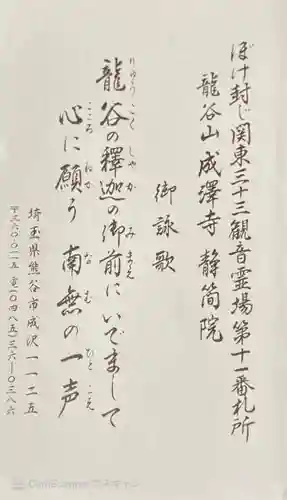 ぼけ封じ関東三十三観音霊場第十一番札所
龍谷山 成澤寺 静簡院
御詠歌
龍谷の釋迦の御前にいでまして
りゅうこく しゃか みまえ
心に願う 南無の一声
こころ ねが なむ ひとこえ
埼玉県熊谷市成沢一一二五
〒三六〇-〇一一五 ☎(〇四八五)三六-〇三八六
CamScanner